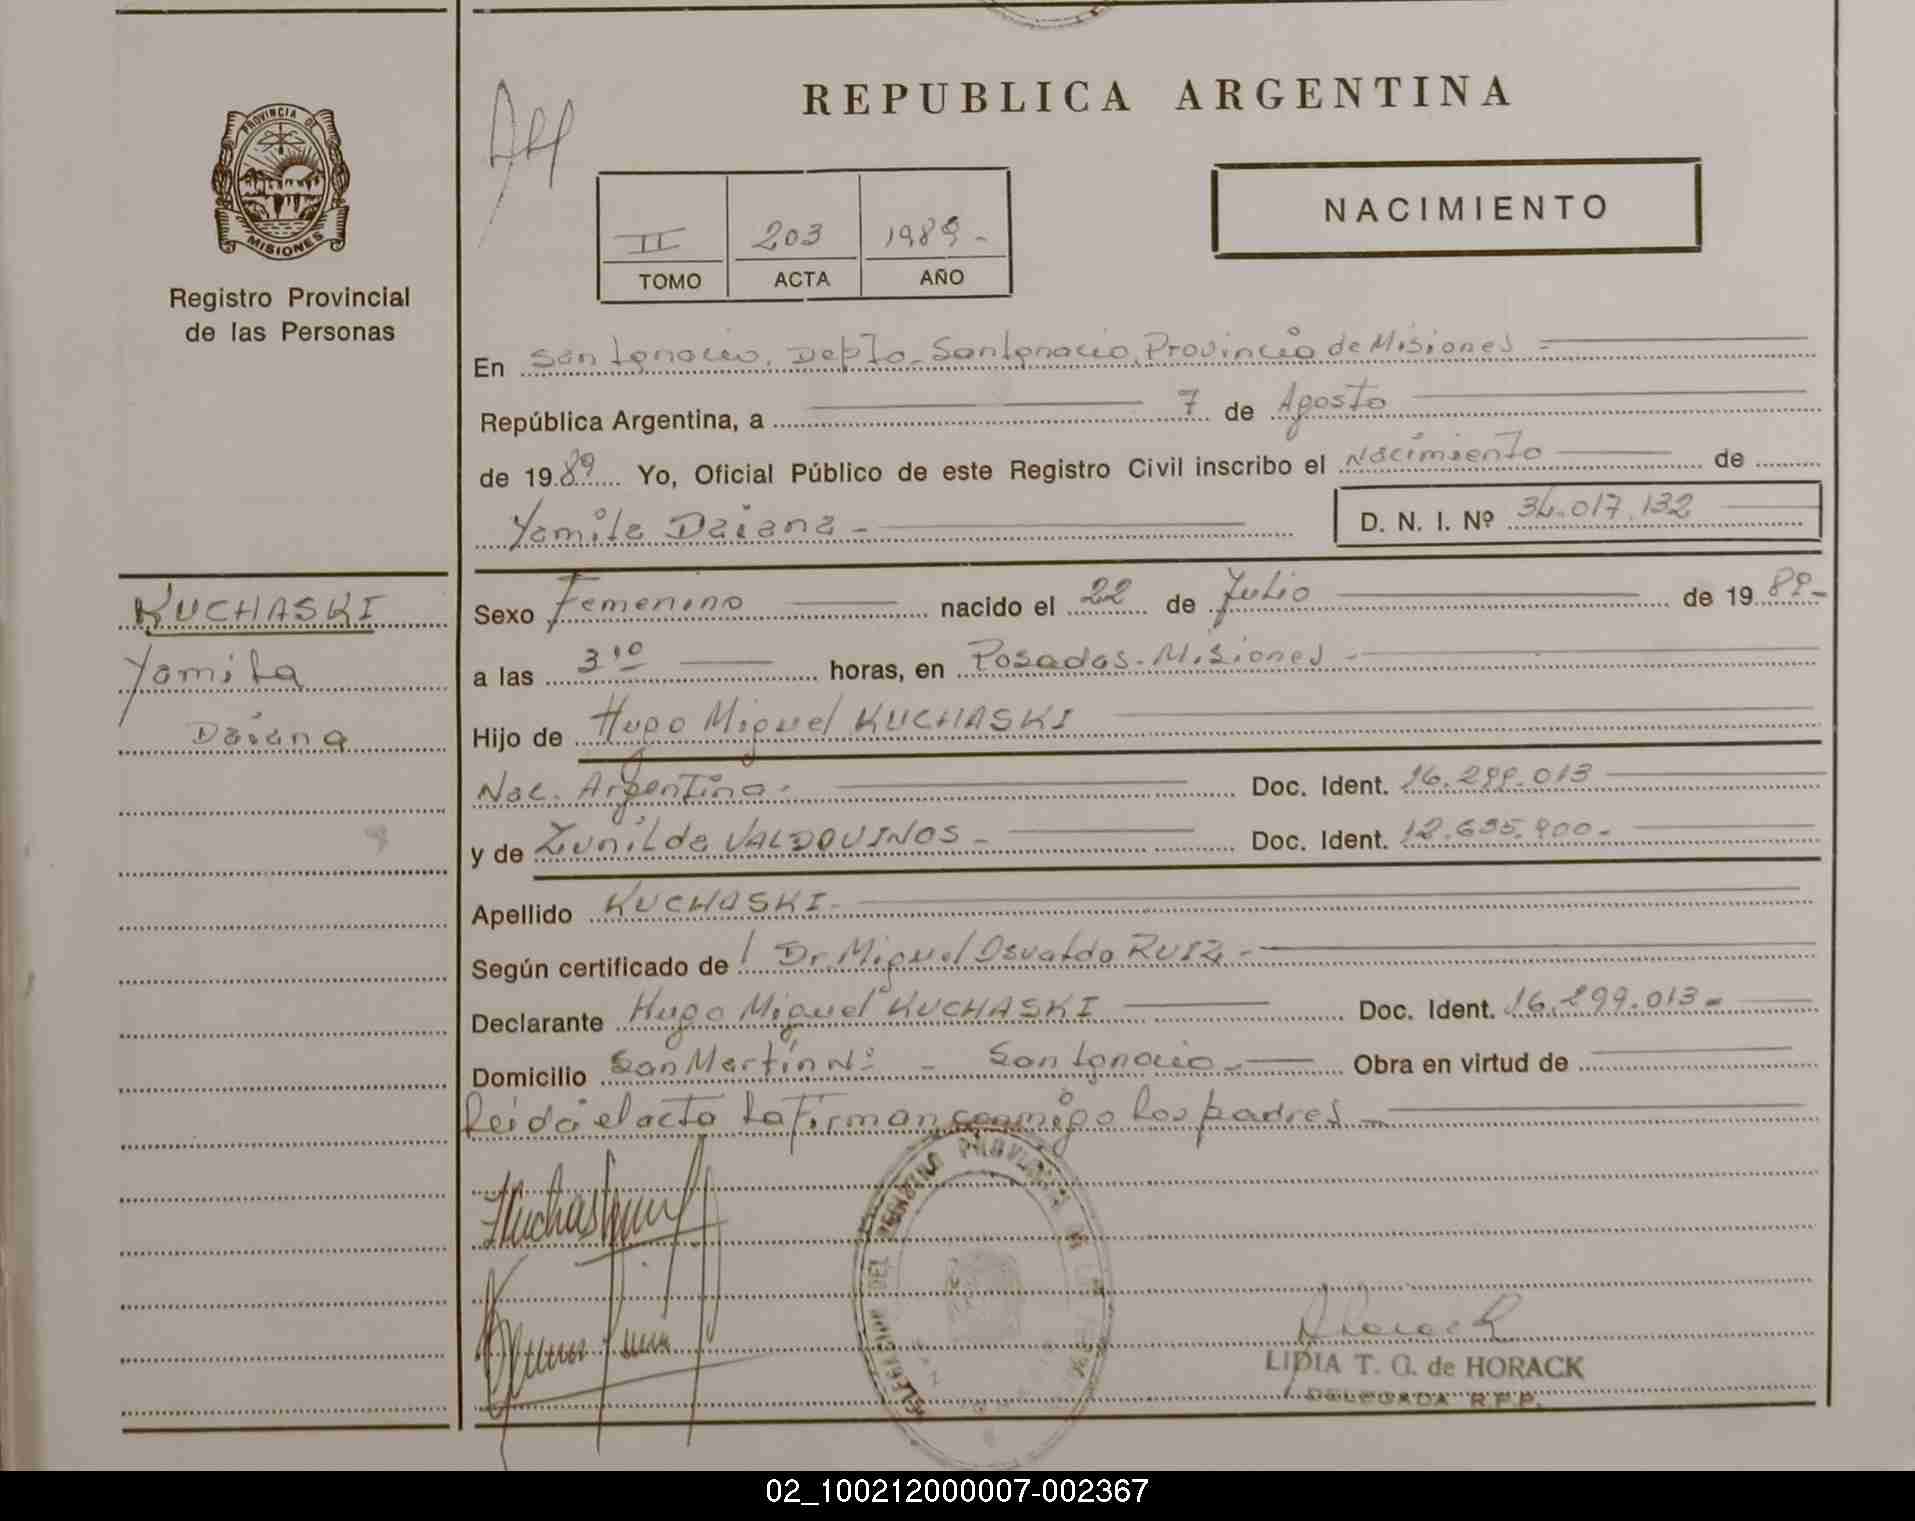 REPUBLICA ARGENTINA
PROVINCIA DE
MISIONES
Registro Provincial
de las Personas
II 203 1989-
TOMO ACTA AÑO
NACIMIENTO
En San Ignacio, Depto. San Ignacio, Provincia de Misiones
República Argentina, a 7 de Agosto
de 1989 Yo, Oficial Público de este Registro Civil inscribo el Nacimiento de
Yamila Daiana - D. N. I. Nº 34.017.132
KUCHASKI
Yamila
Daiana
Sexo Femenino nacido el 22 de Julio de 1989-
a las 3,10 horas, en Posadas - Misiones -
Hijo de Hugo Miguel KUCHASKI
Nac. Argentina. Doc. Ident. 16.299.013
y de Zunilda VALDOVINOS - Doc. Ident. 12.695.900-
Apellido KUCHASKI-
Según certificado de Dr. Miguel Osvaldo RUIZ -
Declarante Hugo Miguel KUCHASKI Doc. Ident. 16.299.013-
Domicilio San Martín Nº - San Ignacio - Obra en virtud de
Leída el acta la firman conmigo los padres -
DELEGACION DEL REGISTRO PROVINCIAL DE LAS
LIDIA T. G. de HORACK
DELEGADA R.P.P.
02_100212000007-002367